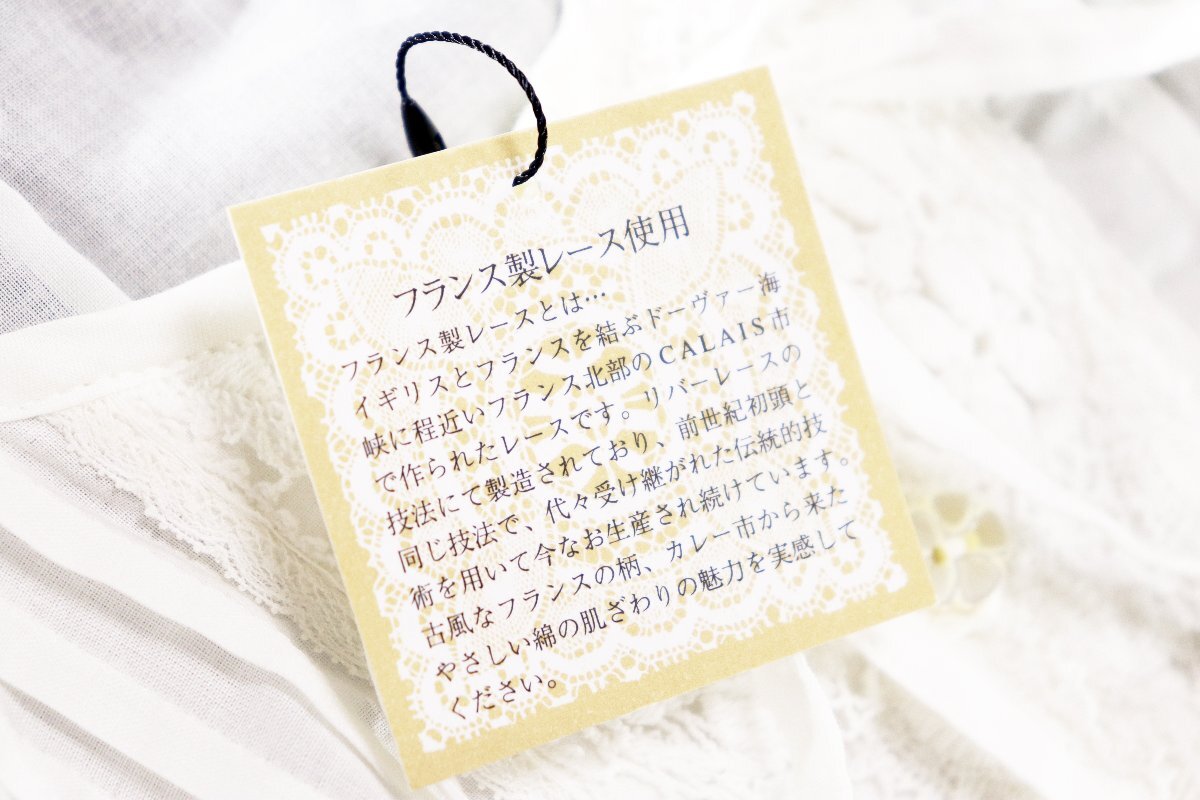 フランス製レース使用
フランス製レースとは…
イギリスとフランスを結ぶドーヴァー海
峡に程近いフランス北部のCALAIS市
で作られたレースです。リバーレースの
技法にて製造されており、前世紀初頭と
同じ技法で、代々受け継がれた伝統的技
術を用いて今なお生産され続けています。
古風なフランスの柄、カレー市から来た
やさしい綿の肌ざわりの魅力を実感して
ください。